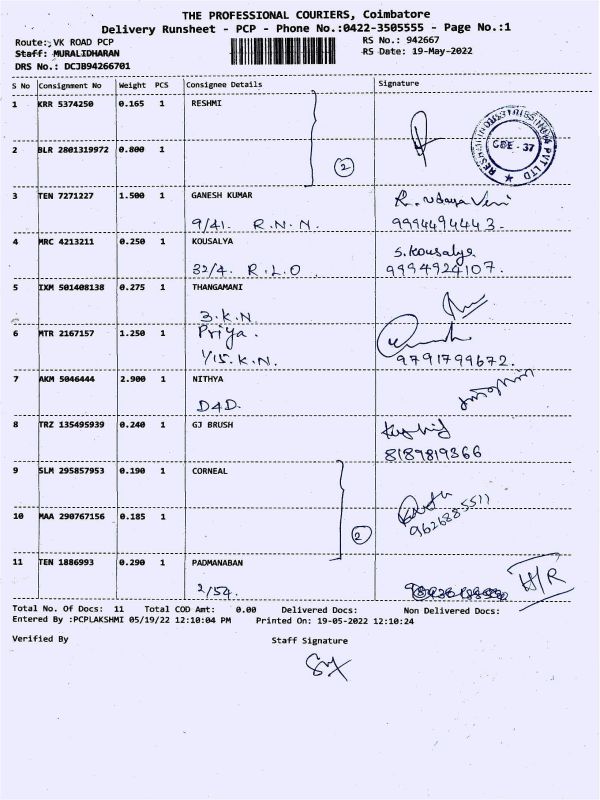 THE PROFESSIONAL COURIERS, Coimbatore
Delivery Runsheet - PCP - Phone No.:0422-3505555 - Page No.:1
Route: VK ROAD PCP RS No.: 942667
Staff: MURALIDHARAN RS Date: 19-May-2022
DRS No.: DCJB94266701
S No Consignment No Weight PCS Consignee Details Signature
1 KRR 5374250 0.165 1 RESHMI
RESHMI INDUSTRIES INDIA PVT LTD
CBE - 37
2 BLR 2801319972 0.800 1
2
3 TEN 7271227 1.500 1 GANESH KUMAR R. Udaya Veni
9/41. R.N.N. 9994494443.
4 MRC 4213211 0.250 1 KOUSALYA S. Kousalya
32/4. R.L.O 9994924107.
5 IXM 501408138 0.275 1 THANGAMANI
3.K.N
6 MTR 2167157 1.250 1 Priya.
1/15. K.N. 9791799672.
7 AKM 5046444 2.900 1 NITHYA
D4D.
8 TRZ 135495939 0.240 1 GJ BRUSH
8189819366
9 SLM 295857953 0.190 1 CORNEAL
10 MAA 290767156 0.185 1 9626885511
2
11 TEN 1886993 0.290 1 PADMANABAN
2/54.
Total No. Of Docs: 11 Total COD Amt: 0.00 Delivered Docs: Non Delivered Docs:
Entered By :PCPLAKSHMI 05/19/22 12:10:04 PM Printed On: 19-05-2022 12:10:24
Verified By Staff Signature